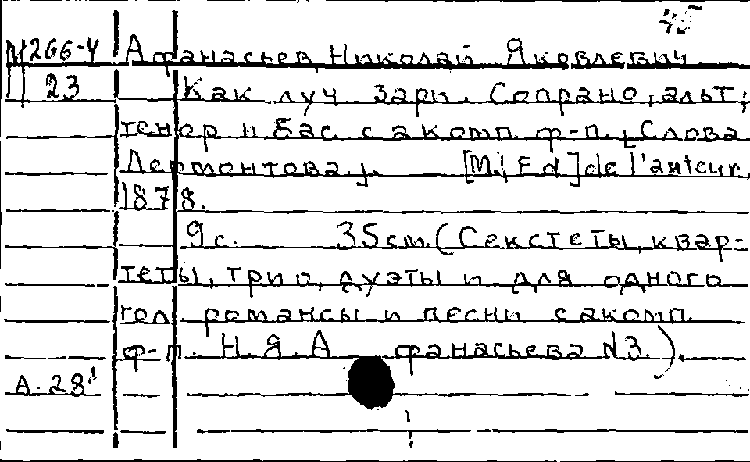 45
П266-4 Афанасьев, Николай Яковлевич
23 Как луч зари. Сопрано, альт,
тенор и бас с акомп. ф-п. [Слова
Лермонтова]. [М.] Ed [de l'auteur,
1878.
9 с. 35 см. (Секстеты, квар-
теты, трио, дуэты и для одного
гол. романсы и песни с акомп.
ф-п. Н. Я. Афанасьева N3).
А-28